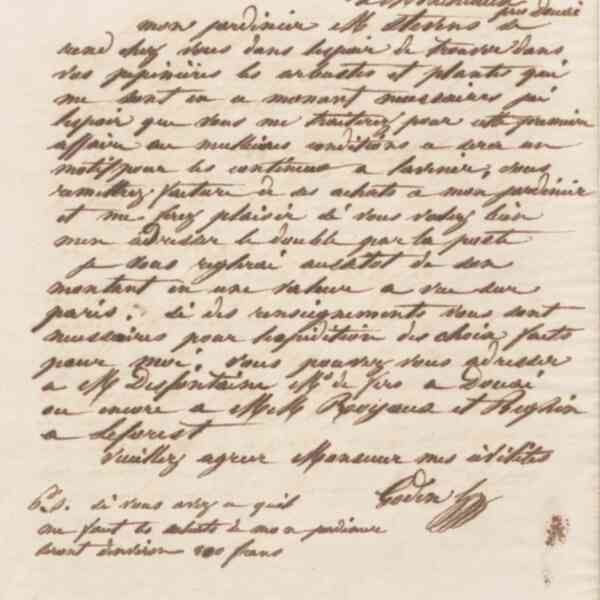 près Douai
mon jardinier M Stevens se
rend chez vous dans l'espoir de trouver dans
vos pepinières les arbustes et plantes qui
me sont en ce moment necessaires j'ai
l'espoir que vous me traiterez pour cette premiere
affaire aux meilleures conditions ce sera un
motif pour les continuer a l'avenir, vous
remettrez facture de ses achats a mon jardinier
et me ferez plaisir si vous voulez bien
m'en adresser le double par la poste
je vous reglerai aussitot de son
montant en une valeur a vue sur
paris. si des renseignements vous sont
necessaires pour l'expedition des choix faits
pour moi, vous pouvez vous adresser
a M Desfontaine Md de fers a Douai
ou encore a MM et
a Leforest
Veuillez agreer Monsieur mes civilités
Godin
P.S. si vous avez ce qu'il
me faut les achats de mon jardinier
seront d'environ francs